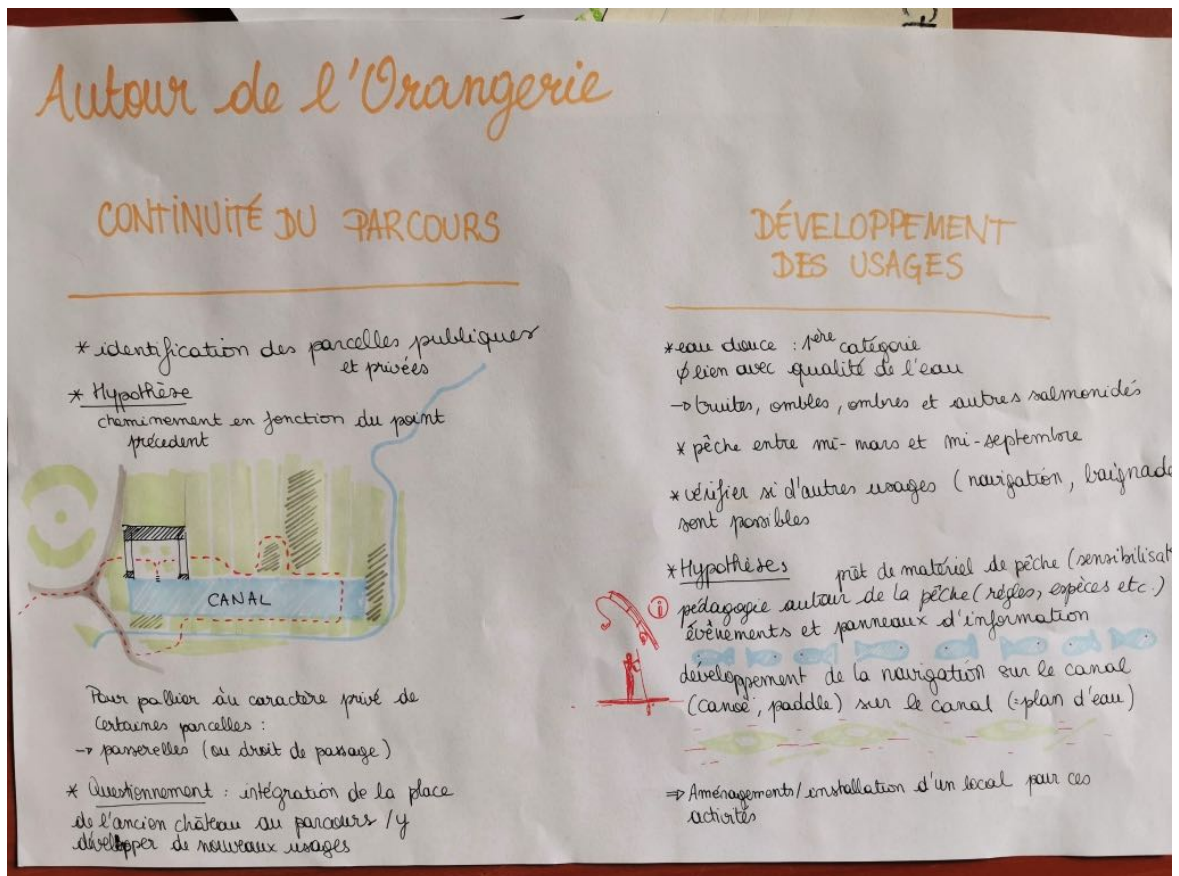 Autour de l'Orangerie
CONTINUITÉ DU PARCOURS
* identification des parcelles publiques
et privées
* Hypothèse
cheminement en fonction du point
précédent
CANAL
Pour pallier au caractère privé de
certaines parcelles :
→ passerelles (ou droit de passage)
* Questionnement : intégration de la place
de l'ancien château au parcours / y
développer de nouveaux usages
DÉVELOPPEMENT
DES USAGES
* eau douce : 1ère catégorie
∅ lien avec qualité de l'eau
→ truites, ombles, ombres et autres salmonidés
* pêche entre mi-mars et mi-septembre
* vérifier si d'autres usages (navigation, baignade
sont possibles
* Hypothèses prêt de matériel de pêche (sensibilisat
pédagogie autour de la pêche (règles, espèces etc.)
i
évènements et panneaux d'information
développement de la navigation sur le canal
(canoë, paddle) sur le canal (=plan d'eau)
⇒ Aménagements/installation d'un local pour ces
activités